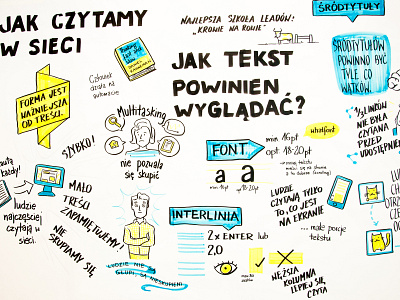 JAK CZYTAMY
W SIECI
FORMA JEST
WAŻNIEJSZA
OD TREŚCI.
Człowiek
działa na
automacie
SZYBKO!
Multitasking
nie pozwala
się skupić
ludzie
najczęściej
czytają w
sieci.
MAŁO
TREŚCI
ZAPAMIĘTUJEMY!
NIE
SKUPIAMY SIĘ
LUDZIE NIE SĄ
GŁUPI, SĄ NIESKUPIENI
NAJLEPSZA SZKOŁA LEADÓW:
"KROWIE NA ROWIE"
JAK TEKST
POWINIEN
WYGLĄDAĆ?
FONT
min 16pt
opt. 18-20pt
whatfont
a a
min 16pt opt 18-20pt
INTERLINIA
2x ENTER lub
2,0
LUDZIE
CZYTAJĄ TYLKO
TO, CO JEST
NA EKRANIE
... małe porcje
tekstu
WĘŻSZA
KOLUMNA
LEPIEJ SIĘ
CZYTA
ŚRÓDTYTUŁY
ŚRÓDTYTUŁÓW
POWINNO BYĆ
TYLE CO
WĄTKÓW.
1/3 LINKÓW
NIE BYŁA
CZYTANA
PRZED
UDOSTĘPNIE